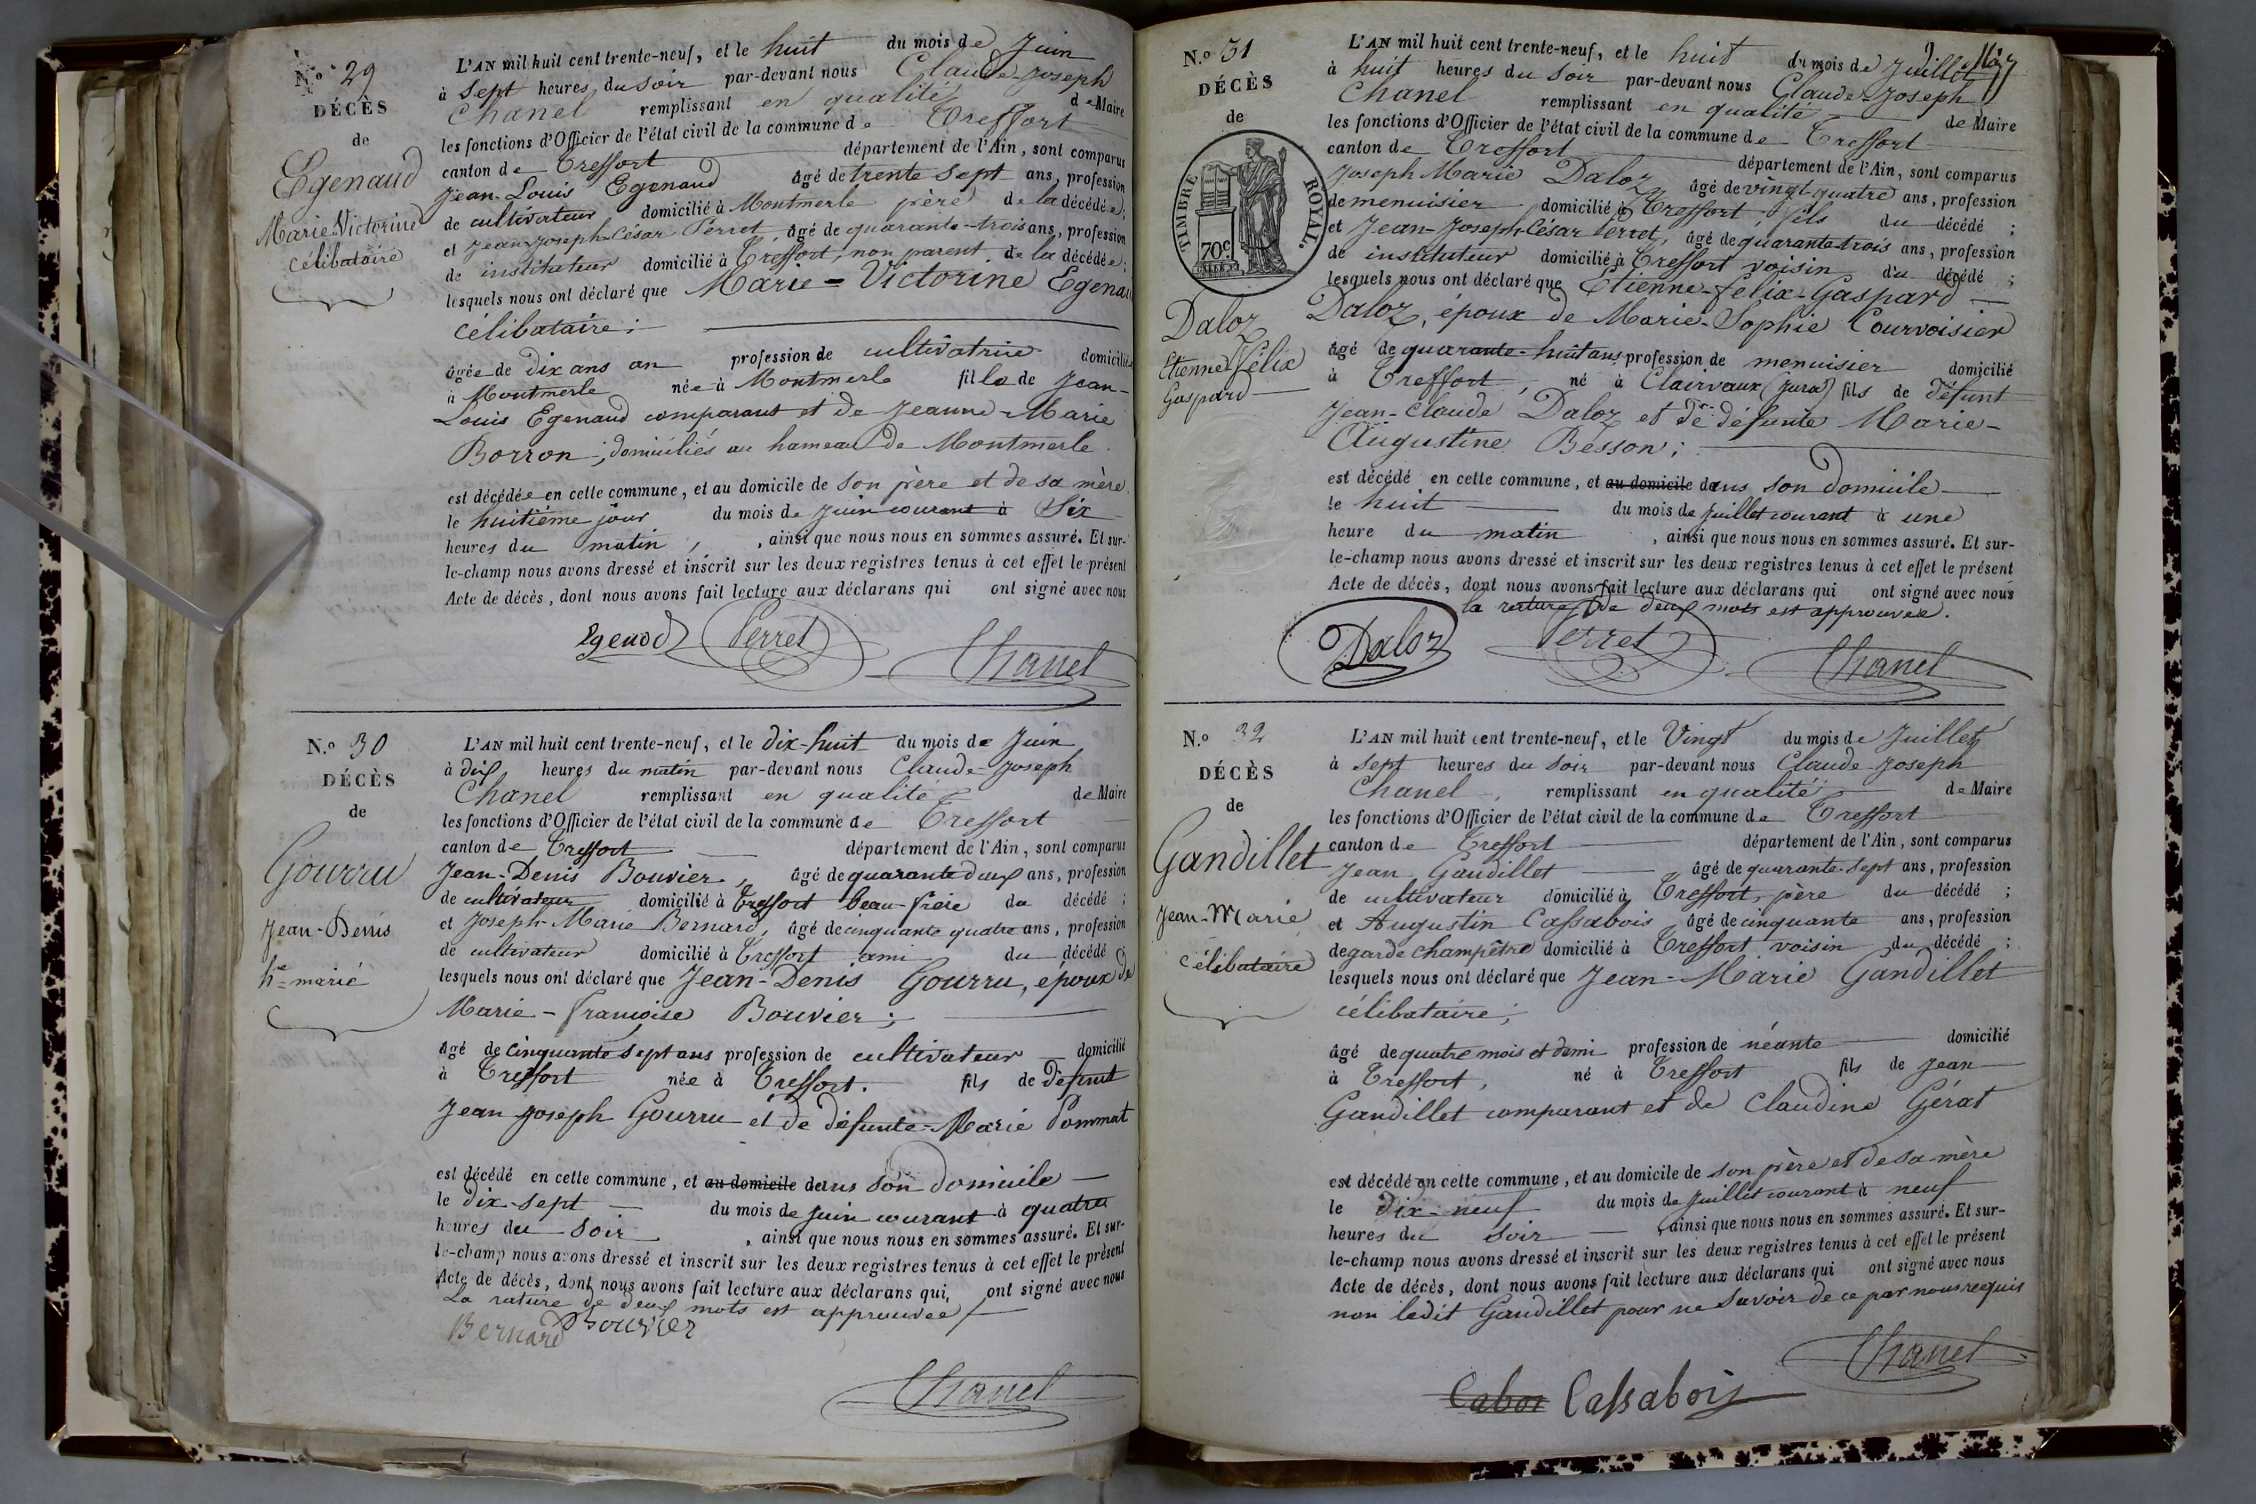 N.º 29
DÉCÈS
de
Egenaud
Marie-Victorine
célibataire
L'AN mil huit cent trente-neuf, et le huit du mois de Juin
à sept heures du soir par-devant nous Claude-Joseph
Chanel remplissant en qualité de Maire
les fonctions d'Officier de l'état civil de la commune de Treffort
canton de Treffort département de l'Ain, sont comparus
Jean-Louis Egenaud âgé de trente sept ans, profession
de cultivateur domicilié à Montmerle père de la décédée;
et Jean-Joseph-César Perret, âgé de quarante-trois ans, profession
de instituteur domicilié à Treffort, non parent de la décédée;
lesquels nous ont déclaré que Marie-Victorine Egenau
célibataire;
âgée de dix ans an profession de cultivatrice domicilié
à Montmerle née à Montmerle fille de Jean-
Louis Egenaud comparant et de Jeanne-Marie
Borron; domiciliés au hameau de Montmerle.
est décédée en cette commune, et au domicile de son père et de sa mère
le huitième jour du mois de Juin courant à Six
heures du matin, , ainsi que nous nous en sommes assuré. Et sur-
le-champ nous avons dressé et inscrit sur les deux registres tenus à cet effet le présent
Acte de décès, dont nous avons fait lecture aux déclarans qui ont signé avec nous
Egenod Perret
Chanel
N.º 30
DÉCÈS
de
Gourru
Jean-Denis
he marié
L'AN mil huit cent trente-neuf, et le dix-huit du mois de Juin
à dix heures du matin par-devant nous Claude-Joseph
Chanel remplissant en qualité de Maire
les fonctions d'Officier de l'état civil de la commune de Treffort
canton de Treffort département de l'Ain, sont comparus
Jean-Denis Bouvier, âgé de quarante deux ans, profession
de cultivateur domicilié à Treffort beau-frère du décédé;
et Joseph-Marie Bernard, âgé de cinquante quatre ans, profession
de cultivateur domicilié à Treffort ami du décédé;
lesquels nous ont déclaré que Jean-Denis Gourru, époux de
Marie-Françoise Bouvier;
âgé de cinquante sept ans profession de cultivateur domicilié
à Treffort née à Treffort. fils de défunt
Jean Joseph Gourru et de défunte Marie Pommat
est décédé en cette commune, et au domicile dans son domicile
le dix-sept du mois de Juin courant à quatre
heures du soir , ainsi que nous nous en sommes assuré. Et sur-
le-champ nous avons dressé et inscrit sur les deux registres tenus à cet effet le présent
Acte de décès, dont nous avons fait lecture aux déclarans qui, ont signé avec nous
La rature de deux mots est approuvée
Bernard Bouvier
Chanel
N.º 31
DÉCÈS
de
TIMBRE ROYAL.
70c.
Daloz
Etienne Félix
Gaspard
L'AN mil huit cent trente-neuf, et le huit du mois de Juillet
à huit heures du soir par-devant nous Claude-Joseph
Chanel remplissant en qualité de Maire
les fonctions d'Officier de l'état civil de la commune de Treffort
canton de Treffort département de l'Ain, sont comparus
Joseph Marie Daloz âgé de vingt-quatre ans, profession
de menuisier domicilié à Treffort, fils du décédé;
et Jean-Joseph-César Perret, âgé de quarante-trois ans, profession
de instituteur domicilié à Treffort voisin du décédé;
lesquels nous ont déclaré que Étienne-Félix-Gaspard
Daloz, époux de Marie-Sophie Courvoisier
âgé de quarante-huit ans profession de menuisier domicilié
à Treffort, né à Clairvaux (Jura) fils de défunt
Jean-Claude Daloz et de défunte Marie-
Augustine Besson;
est décédé en cette commune, et au domicile dans son domicile
le huit du mois de Juillet courant à une
heure du matin , ainsi que nous nous en sommes assuré. Et sur-
le-champ nous avons dressé et inscrit sur les deux registres tenus à cet effet le présent
Acte de décès, dont nous avons fait lecture aux déclarans qui ont signé avec nous
la rature de deux mots est approuvée.
Daloz Perret
Chanel
N.º 32
DÉCÈS
de
Gandillet
Jean-Marie
célibataire
L'AN mil huit cent trente-neuf, et le Vingt du mois de Juillet
à sept heures du soir par-devant nous Claude-Joseph
Chanel, remplissant en qualité de Maire
les fonctions d'Officier de l'état civil de la commune de Treffort
canton de Treffort département de l'Ain, sont comparus
Jean Gandillet âgé de quarante-sept ans, profession
de cultivateur domicilié à Treffort, père du décédé;
et Augustin Cassabois âgé de cinquante ans, profession
de garde champêtre domicilié à Treffort voisin du décédé;
lesquels nous ont déclaré que Jean-Marie Gandillet
célibataire;
âgé de quatre mois et demi profession de néante domicilié
à Treffort, né à Treffort fils de Jean
Gandillet comparant et de Claudine Gérat
est décédé en cette commune, et au domicile de son père et de sa mère
le dix-neuf du mois de Juillet courant à neuf
heures du soir , ainsi que nous nous en sommes assuré. Et sur-
le-champ nous avons dressé et inscrit sur les deux registres tenus à cet effet le présent
Acte de décès, dont nous avons fait lecture aux déclarans qui ont signé avec nous
non ledit Gandillet pour ne savoir de ce par nous requis
Chanel
Cabos Cassabois